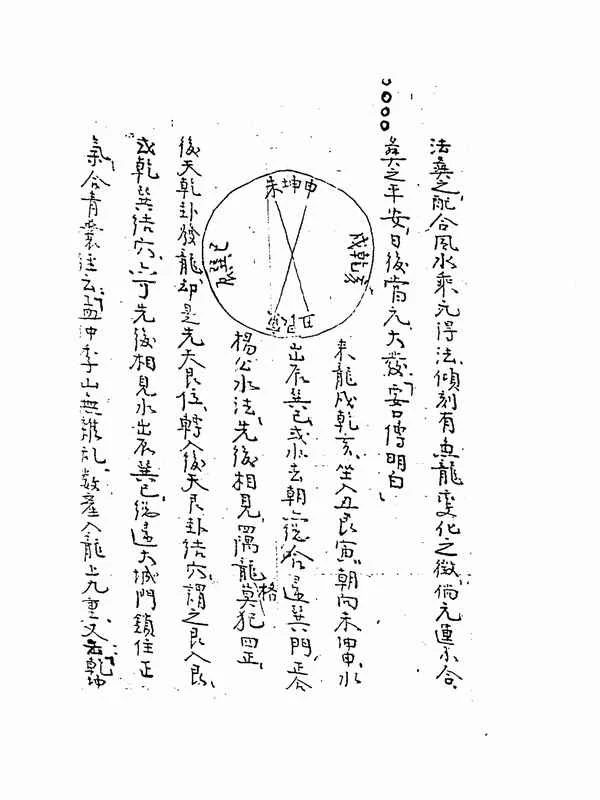 法葬之,配合風水乘元得法,傾刻有魚龍變化之徵,倘元運不合,
○○○○葬之平安,日後當元大發,要口傳明白,
未坤申
戌乾亥
丑艮寅
辰巽巳
來龍戌乾亥,坐入丑艮寅,朝向未坤申,水
出辰巽巳或水去朝,總合還巽門,正合
楊公水法,先後相見,四隅龍格莫犯四正,
後天乾卦發龍,却是先天艮位,轉入後天艮卦結穴,謂之艮入艮,
或乾巽結穴,亦可先後相見水出辰巽巳,總還大城門鎖住正
氣,合青囊註云,孟仲季山無雜亂,數產入龍上九重,又云乾坤